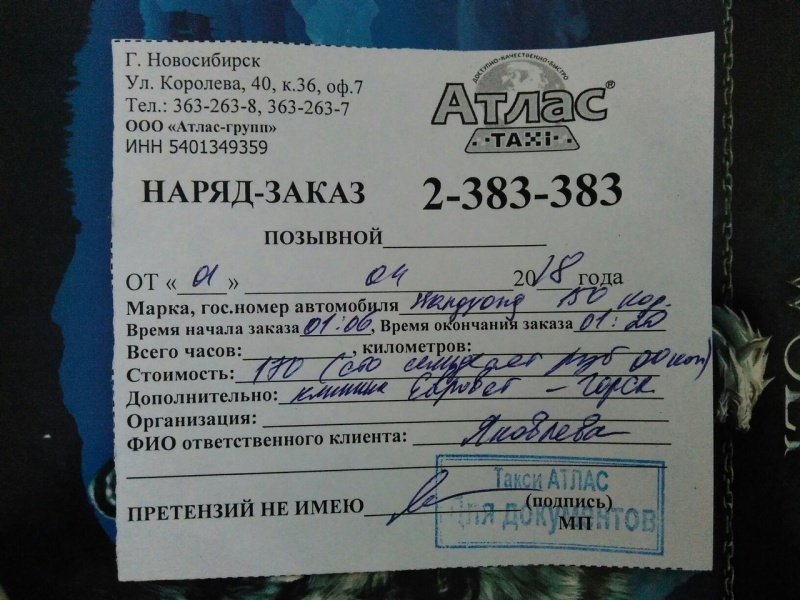 Г. Новосибирск
Ул. Королева, 40, к.36, оф.7
Тел.: 363-263-8, 363-263-7
ООО «Атлас-групп»
ИНН 5401349359
ДОСТУПНО-КАЧЕСТВЕННО-БЫСТРО
Атлас®
TAXi
НАРЯД-ЗАКАЗ 2-383-383
ПОЗЫВНОЙ
ОТ « 01 » 04 2018 года
Марка, гос.номер автомобиля 150 кор.
Время начала заказа 01:06, Время окончания заказа 01:20
Всего часов: , километров:
Стоимость: 170 (сто семьдесят руб 00 коп)
Дополнительно: клиника Евровет - Горск
Организация:
ФИО ответственного клиента: Яковлева
ПРЕТЕНЗИЙ НЕ ИМЕЮ
(подпись)
МП
Такси АТЛАС
ДЛЯ ДОКУМЕНТОВ